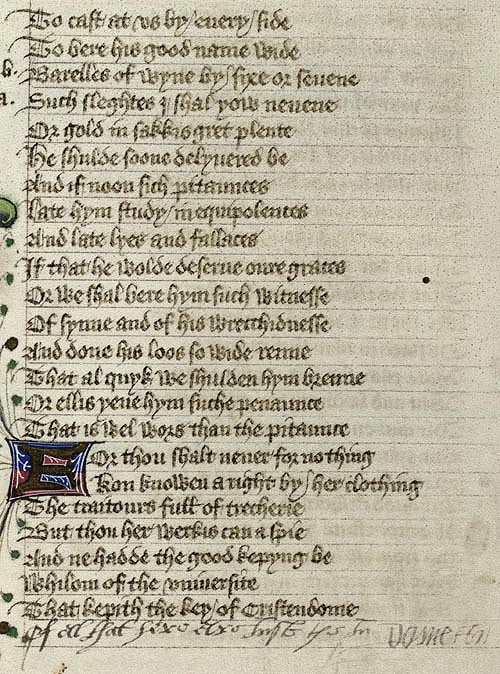 To cast at vs by euery side
To bere his good name wide
b. Barelles of wyne by sixe or seuene
a. Such sleghtes I shal yow neuene
Or gold in sakkis gret plente
He shulde soone delyuered be
And if noon sich pitaunces
Late hym study in equipolences
And late lyes and fallaces
If that he wolde deserue oure graces
Or we shal bere hym such witnesse
Of synne and of his wrecchidnesse
And done his loos so wide renne
That al quyk we shulden hym brenne
Or ellis yeue hym suche penaunce
That is wel wors than the pitaunce
For thou shalt neuer for nothing
Kon knowen a right by her clothing
The traitours full of trecherie
But thou her werkis can aspie
And ne hadde the good kepyng be
Whilom of the vniuersite
That kepith the key of Cristendome
Of al that